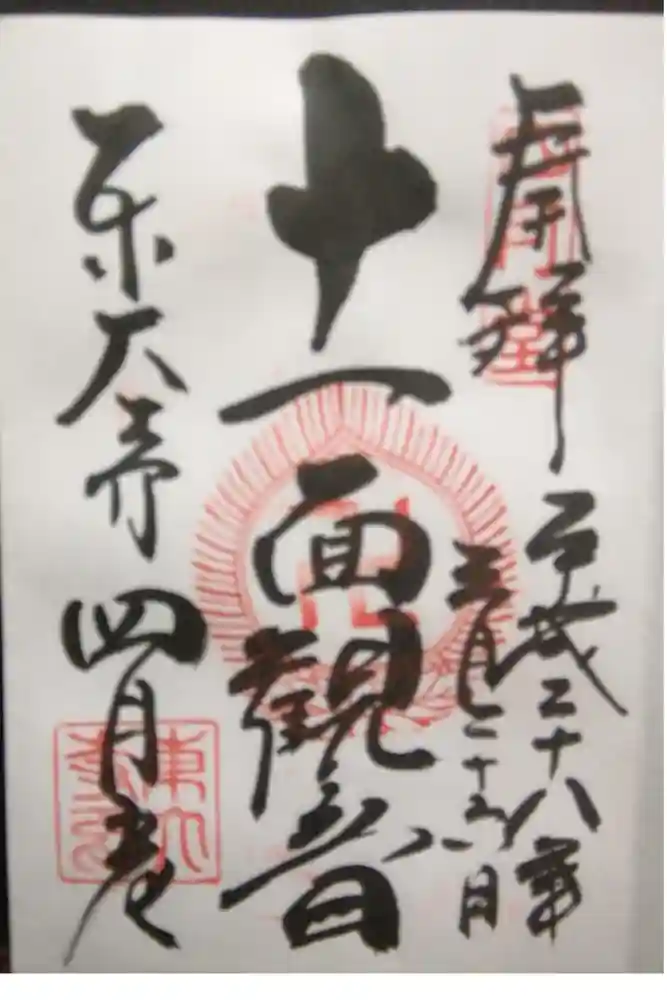 奉拝
平成二十八年
三月二十六日
十一面觀音
東大寺
四月堂